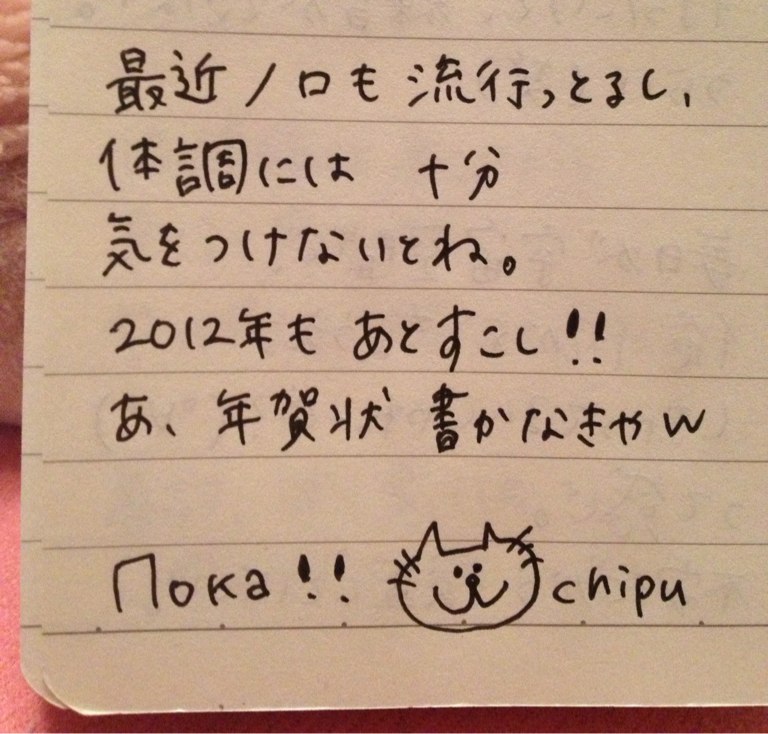 最近ノロも流行っとるし、
体調には 十分
気をつけないとね。
2012年も あとすこし!!
あ、年賀状 書かなきゃw
Пока!! chipu